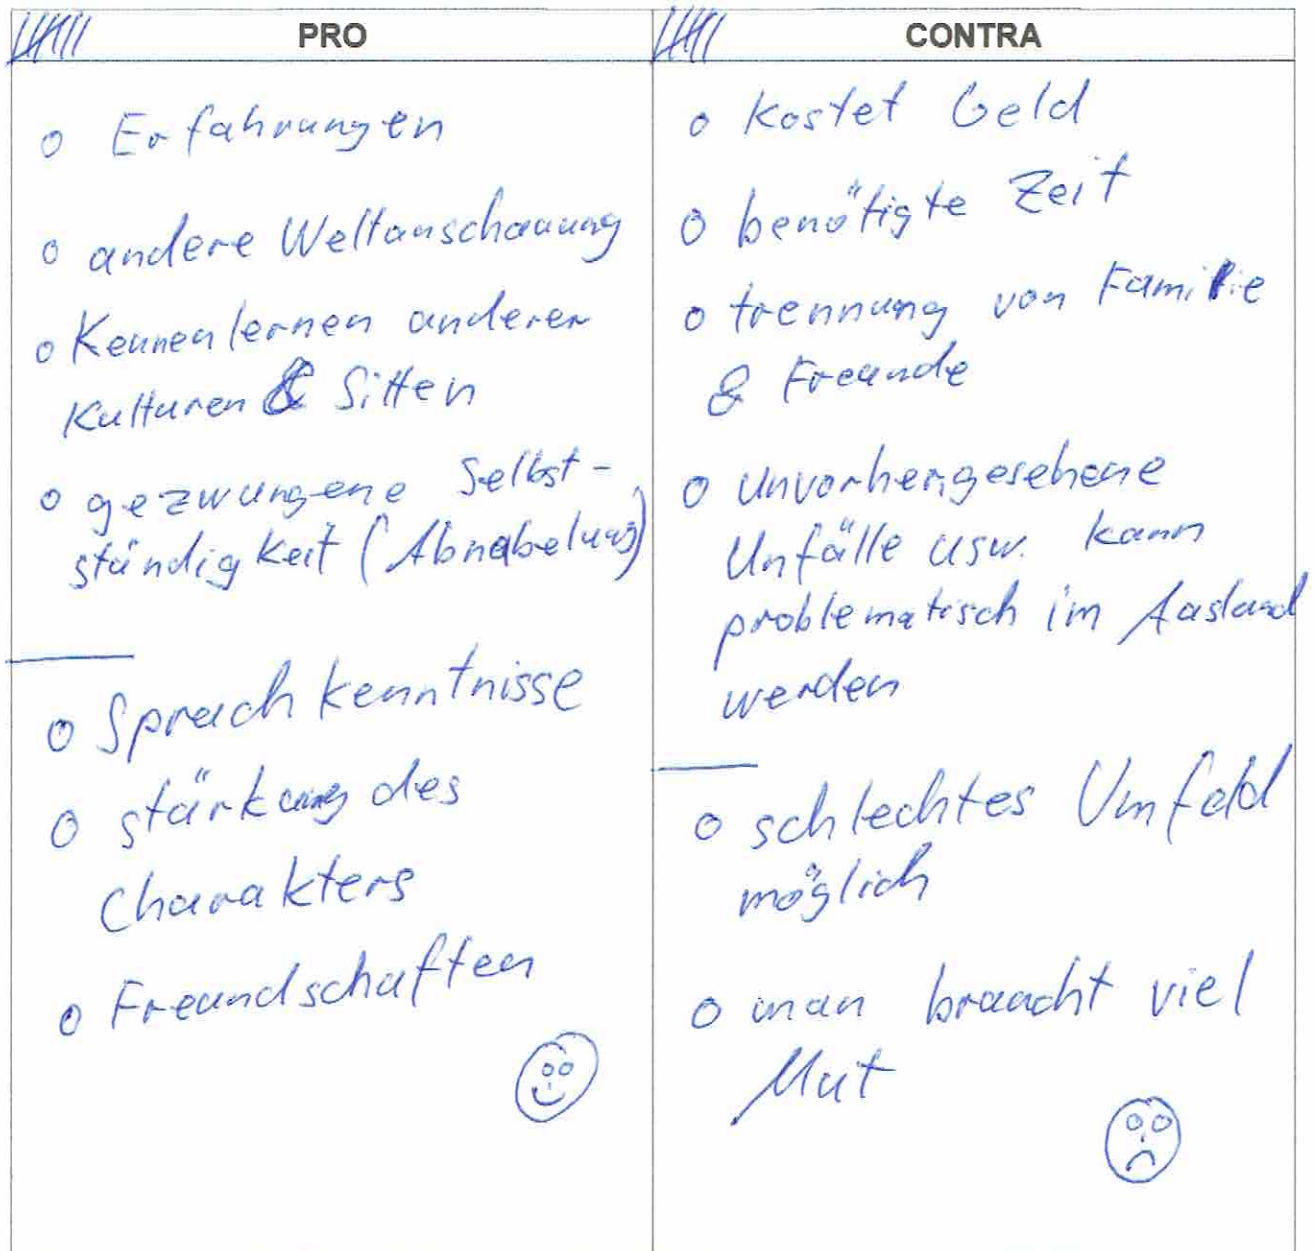 PRO
o Erfahrungen
o andere Weltanschauung
o Kennenlernen anderer
Kulturen & Sitten
o gezwungene Selbst-
ständigkeit (Abnabelung)
o Sprachkenntnisse
o stärkung des
Charakters
o Freundschaften
CONTRA
o kostet Geld
o benötigte Zeit
o trennung von Familie
& Freunde
o unvorhergesehene
Unfälle usw. kann
problematisch im Ausland
werden
o schlechtes Umfeld
möglich
o man braucht viel
Mut